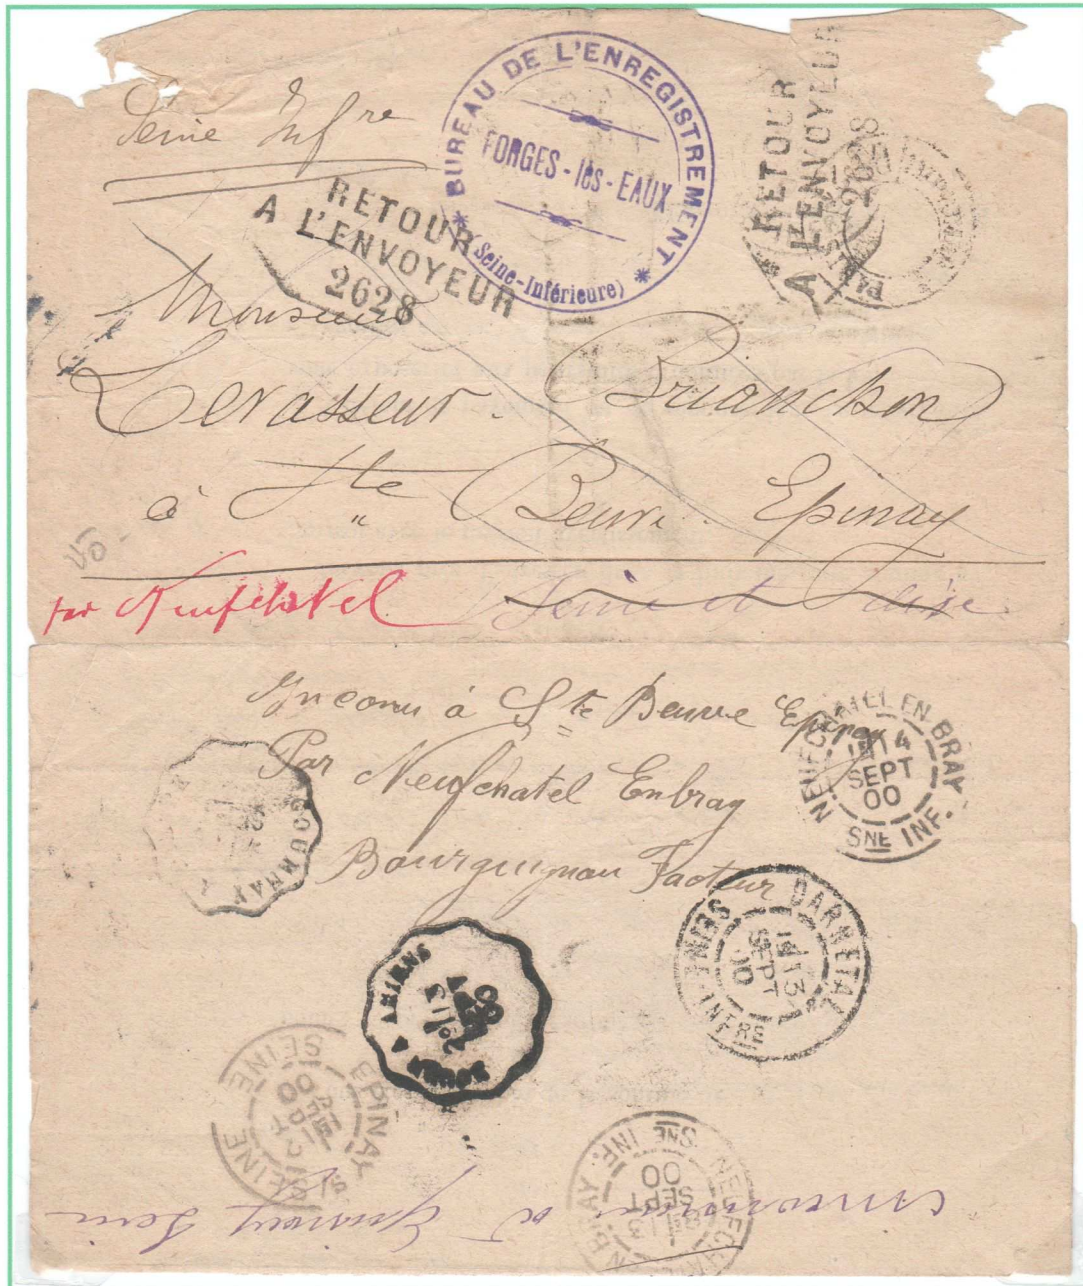 Seine Inf re
BUREAU DE L'ENREGISTREMENT
FORGES-lès-EAUX
* (Seine-Inférieure) *
RETOUR
A L'ENVOYEUR
2628
RETOUR
A L'ENVOYEUR
2628
Monsieur
Levasseur. Brianchon
à Ste Beuve. Epinay
par Neufchatel Seine et Oise
Inconu à Ste Beuve Epinay
Par Neufchatel Enbray
Bourguignan Facteur
NEUFCHATEL EN-BRAY
14
SEPT
00
SNE INF.
GOURNAY
DARNETAL
13
SEPT
00
SEINE-INFRE
ROUEN A AMIENS
13
SEPT
00
EPINAY S/ SEINE
12
SEPT
00
SEINE
NEUFCHATEL EN BRAY.
13
SEPT
00
SNE INF.
inconnu à Epinay Seine